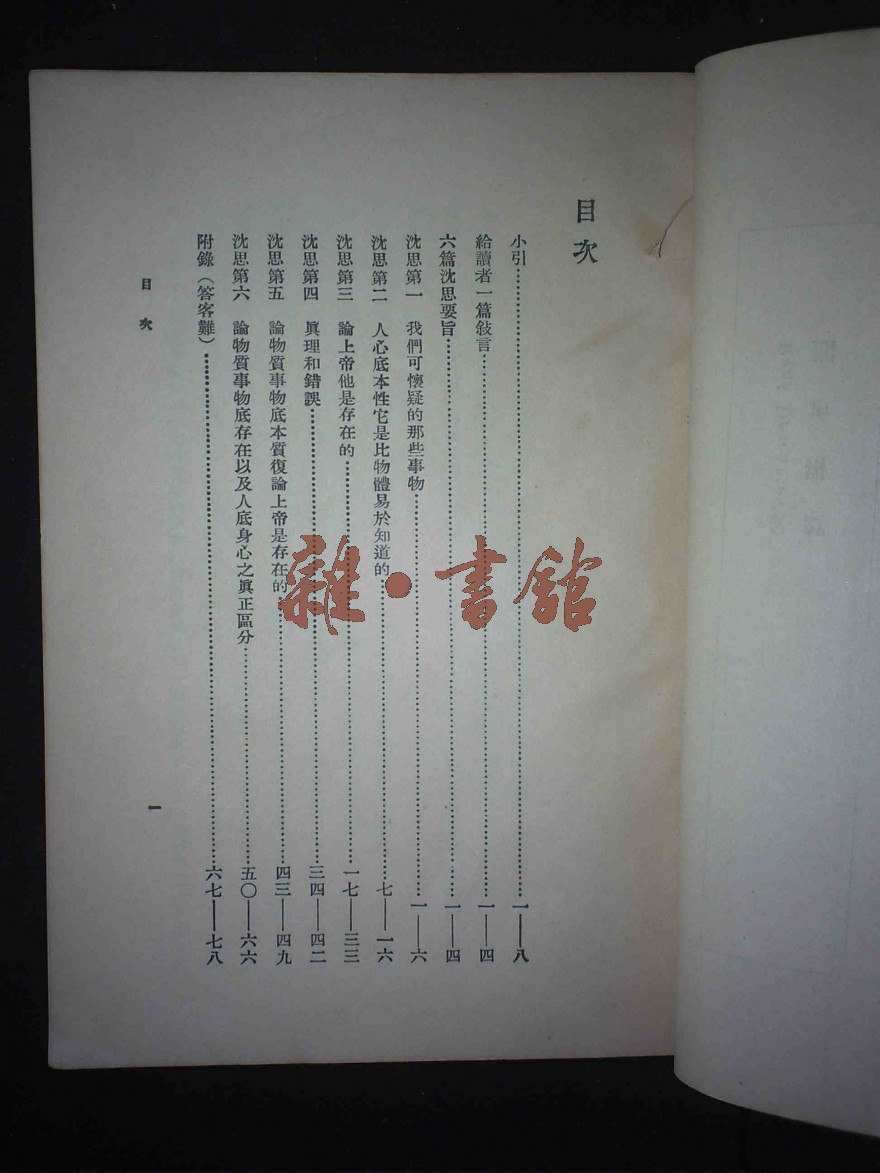 目次
小引…………一——八
給讀者一篇敍言…………一——四
六篇沈思要旨…………一——四
沈思第一 我們可懷疑的那些事物…………一——六
沈思第二 人心底本性它是比物體易於知道的…………七——一六
沈思第三 論上帝他是存在的…………一七——三三
沈思第四 眞理和錯誤…………三四——四二
沈思第五 論物質事物底本質復論上帝是存在的…………四三——四九
沈思第六 論物質事物底存在以及人底身心之眞正區分…………五〇——六六
附錄（答客難）…………六七——七八
目次
一
雜·書館